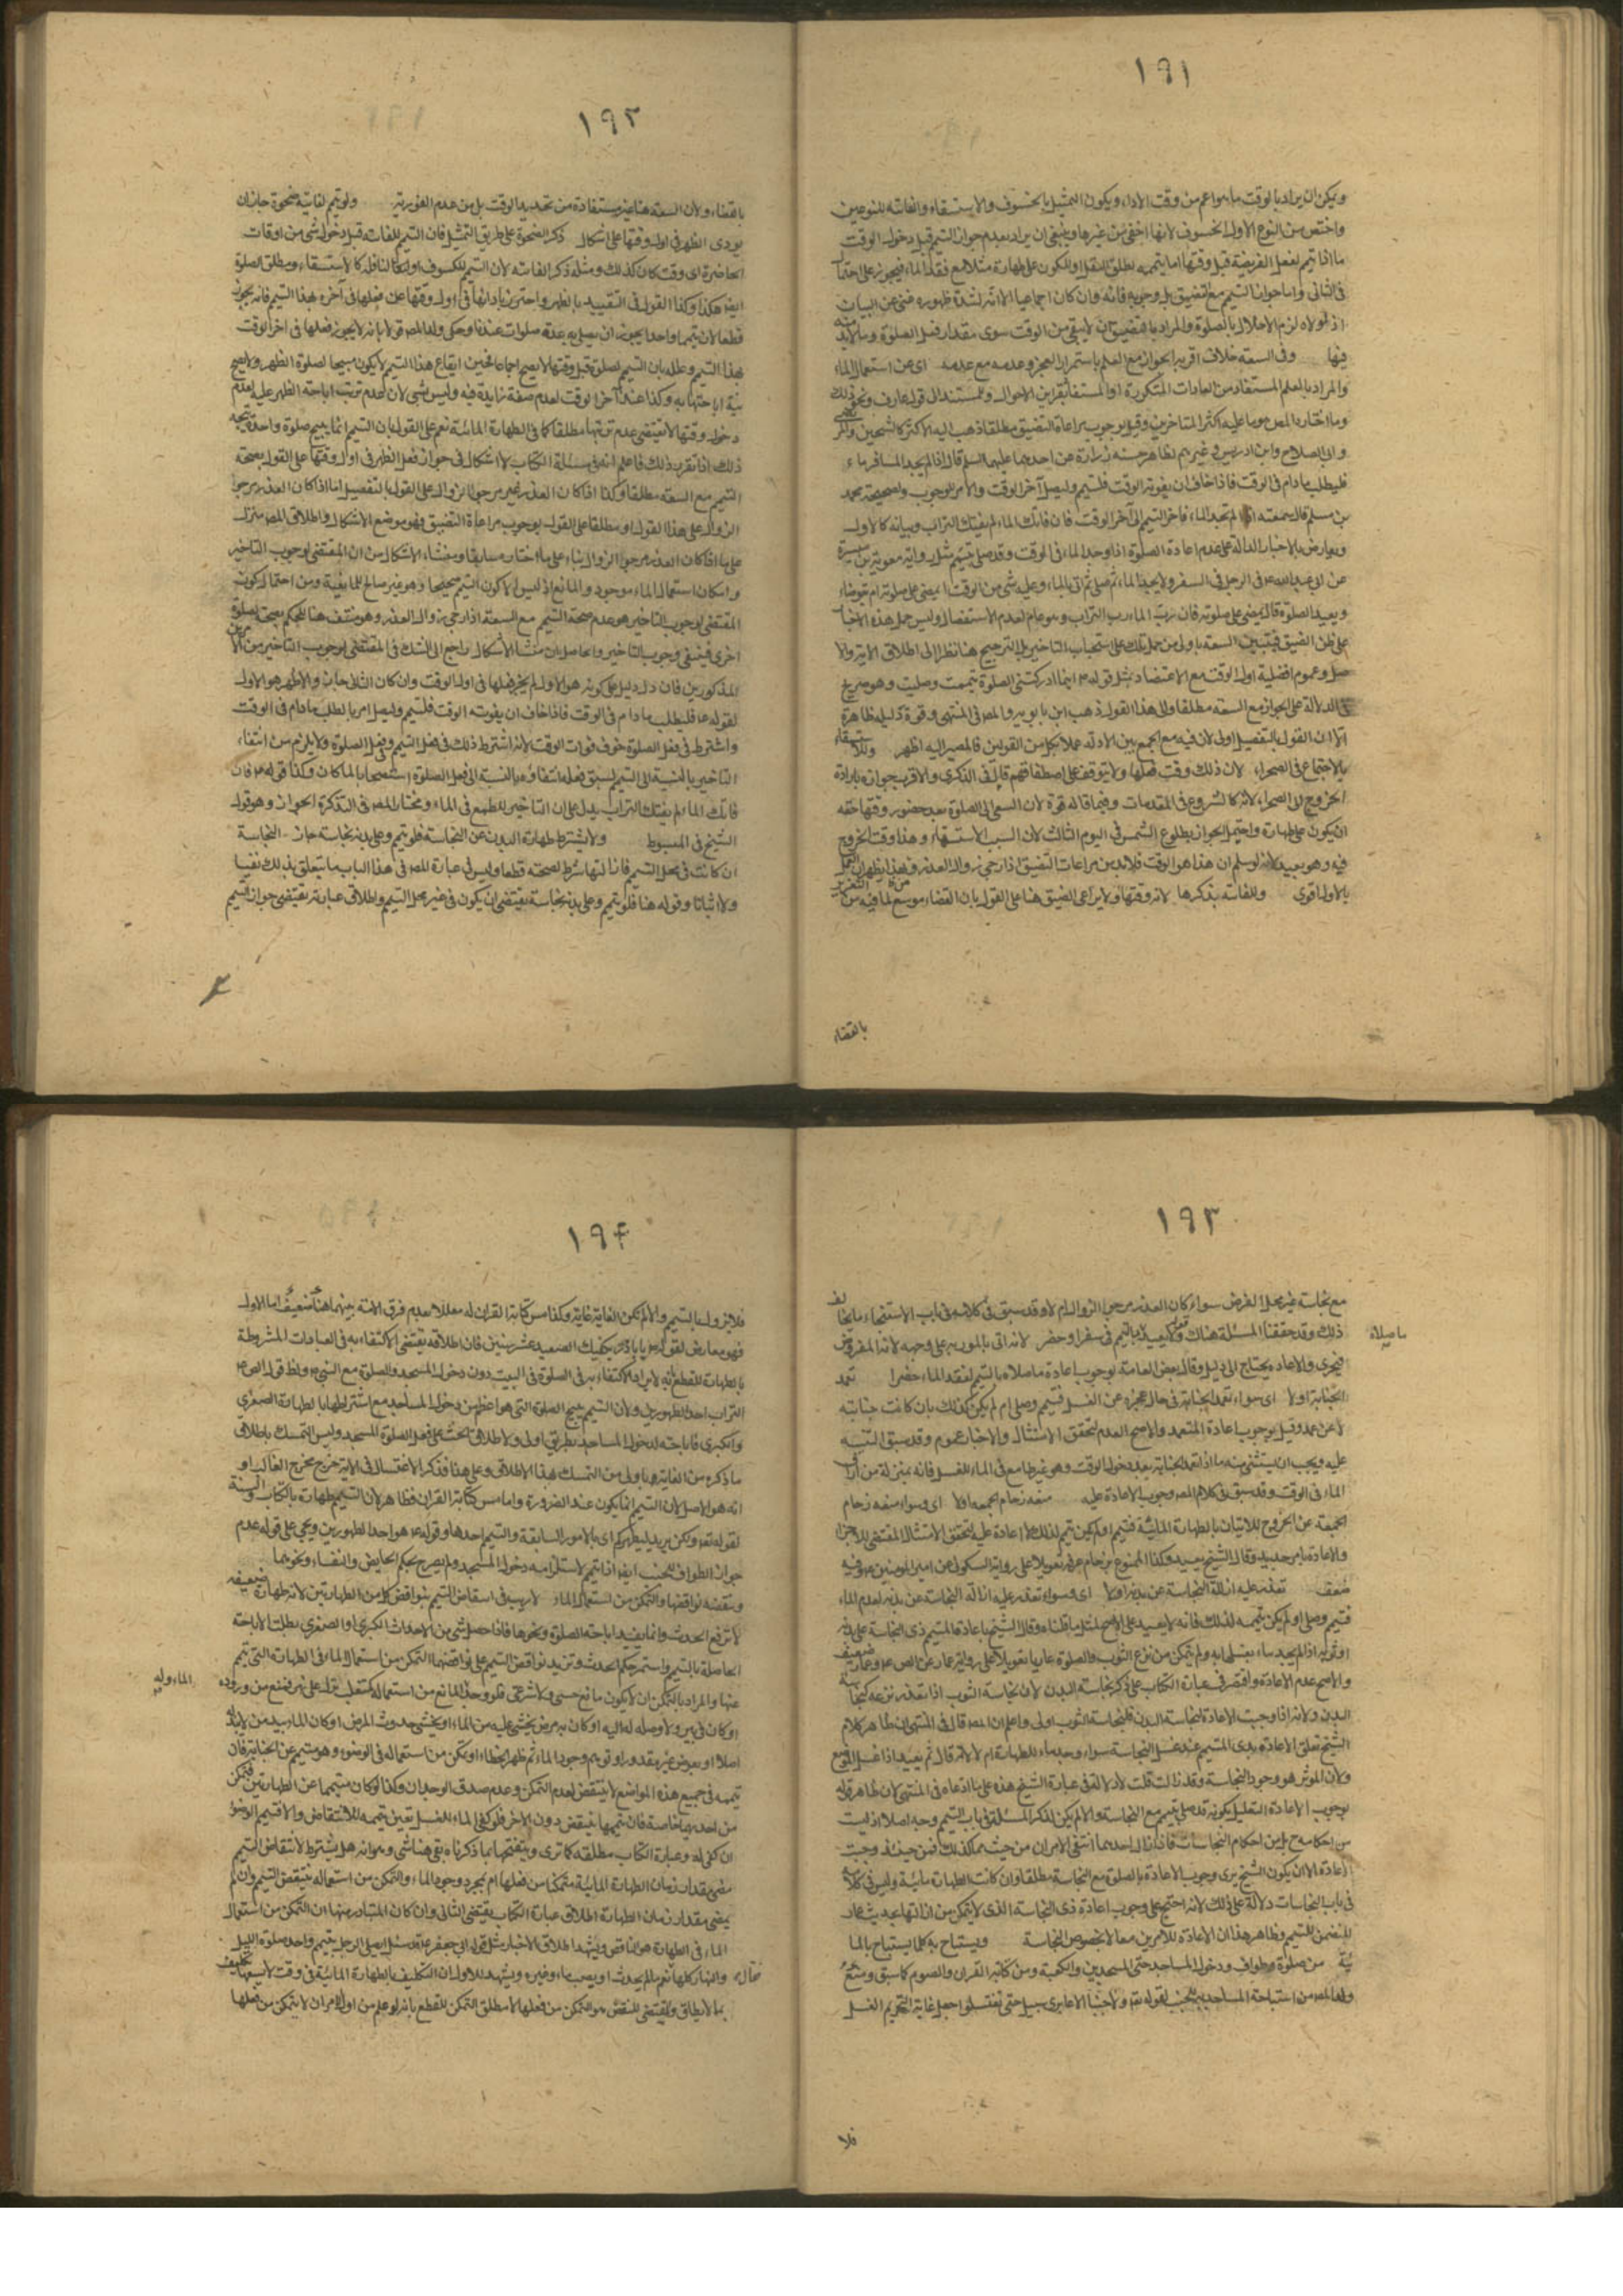 ١٩١
ويمكن ان يراد بالوقت ما هو اعم من وقت الاداء ويكون التمثيل بالخسوف والاستسقاء والفائتة للنوعين
واختص من النوع الاول الخسوف لانها اخفى من غيرها وينبغي ان يراد بعدم جواز التيمم قبل دخول الوقت
ما اذا تيمم لفعل الفريضة قبل وقتها اما بتيممه لمطلق النفل او للكون على طهارة مثلا مع فقد الماء فيجوز على احتمال
في الثاني واما جواز التيمم مع تضيق بل وجوبه فانه وان كان اجماعيا الا انه لشدة ظهوره غني عن البيان
اذ لولاه لزم الاخلال بالصلوة والمراد بالتضيق ان لا يبقى من الوقت سوى مقدار فعل الصلوة وما لا بد منه
فيها وفي السعة خلاف اقربه الجواز مع العلم باستمرار العجز وعدمه مع عدمه اي عن استعمال الماء
والمراد بالعلم المستفاد من العادات المتكررة او المستفاد بقراين الاحوال ولمستند الى قول عارف ونحو ذلك
وما اختاره المص هو ما عليه اكثر المتاخرين وقيل بوجوب مراعاة التضيق مطلقا ذهب اليه الاكثر كالشيخين والمرتضى
وابي الصلاح وابن ادريس وغيرهم لظاهر حسنة زرارة عن احدهما عليهما السلم قال اذا لم يجد المسافر ماء
فليطلب ما دام في الوقت فاذا خاف ان يفوته الوقت فليتيمم وليصل آخر الوقت والامر للوجوب ولصحيحة محمد
بن مسلم قال سمعته اذا لم تجد الماء فاخر التيمم الى آخر الوقت فان فاتك الماء لم يفتك التراب وبيانه كالاول
ويعارض بالاخبار الدالة على عدم اعادة الصلوة اذا وجد الماء في الوقت وقد صلى بتيمم مثل رواية معوية بن ميسرة
عن ابي عبد الله ع في الرجل في السفر ولا يجد الماء ثم صلى ثم اتى بالماء وعليه شئ من الوقت ايمضي على صلوته ام يتوضاء
ويعيد الصلوة قال يمضي على صلوته فان رب الماء رب التراب وهو عام لعدم الاستفصال وليس حمل هذه الاخبار
على ظن الضيق فتبين السعة باولى من حمل تلك على استحباب التاخير بل الترجيح هنا نظرا الى اطلاق الآية والا
صل وعموم افضلية اول الوقت مع الاعتضاد بمثل قوله ع اينما ادركتني الصلوة تيممت وصليت وهو صريح
في الدلالة على الجواز مع السعة مطلقا والى هذا القول ذهب ابن بابويه والمص في المنتهى وقوة دليله ظاهرة
الا ان القول بالتفصيل اولى لان فيه مع الجمع بين الادلة عملا بكل من القولين فالمصير اليه اظهر وللاستسقاء
بالاجتماع في الصحراء لان ذلك وقت فعلها ولا يتوقف على اصطفافهم قاله في الذكرى والاقرب جوازه بارادة
الخروج الى الصحراء لانه كالشروع في المقدمات وفيما قاله قوة لان السعي الى الصلوة بعد حضور وقتها حقه
ان يكون على طهارة واحتمل الجواز بطلوع الشمس في اليوم الثالث لان السبب الاستسقاء وهذا وقت الخروج
فيه وهو بعيد لانه لو سلم ان هذا هو الوقت فلا بد من مراعات التضيق اذا رجي زوال العذر وبهذا يظهر ان العمل
بالاول اقوى وللفائتة بذكرها لانه وقتها ولا يراعى الضيق هنا على القول بان القضاء موسع لما فيه من التغرير
بالقضاء
١٩٢
بالقضاء ولان السعة هنا غير مستفادة من تحديد الوقت بل من عدم الفورية ولو تيمم لفائتة ضحوة جاز ان
يودي الظهر في اول وقتها على اشكال ذكر الضحوة على طريق التمثيل فان التيمم للفائتة قبل دخول شئ من اوقات
الحاضرة اي وقت كان كذلك ومثله ذكر الفائتة لان التيمم للكسوف او لصلوة النافلة كالاستسقاء ومطلق الصلوة
ايضا هكذا وكذا القول في التقييد بالظهر واحترز بادائها في اول وقتها عن فعلها في آخره بهذا التيمم فانه يجوز
قطعا لان تيمما واحدا يجوز ان يصلي به عدة صلوات عندنا وحكى ولد المص قولا بانه لا يجوز فعلها في اخر الوقت
بهذا التيمم وعلله بان التيمم لصلوة قبل وقتها لا يصح اجماعا فحين ايقاع هذا التيمم لا يكون مبيحا لصلوة الظهر ولا يصح
نية اباحتها به وكذا عند آخر الوقت لعدم صفة زايدة فيه وليس بشئ لان عدم ترتب اباحة الظهر عليه لعدم
دخول وقتها لا يقتضي عدم ترتبها مطلقا كما في الطهارة المائية نعم على القول بان التيمم انما يبيح صلوة واحدة يتجه
ذلك اذا تقرر ذلك فاعلم انه في مسئلة الكتاب لا اشكال في جواز فعل الظهر في اول وقتها على القول بصحة
التيمم مع السعة مطلقا وكذا اذا كان العذر غير مرجو الزوال على القول بالتفصيل اما اذا كان العذر مرجو
الزوال على هذا القول او مطلقا على القول بوجوب مراعاة التضيق فهو موضع الاشكال واطلاق المص منزل
على ما اذا كان العذر مرجو الزوال بناء على ما اختاره سابقا ومنشاء الاشكال من ان المقتضي لوجوب التاخير
وامكان استعمال الماء موجود والمانع اذ ليس الا كون التيمم صحيحا وهو غير صالح للمانعية ومن احتمال كون
المقتضي لوجوب التاخير هو عدم صحة التيمم مع السعة اذا رجي زوال العذر وهو منتف هنا للحكم بصحته لصلوة
اخرى فينتفي وجوب التاخير والحاصل ان منشأ الاشكال راجع الى الشك في المقتضي لوجوب التاخير من الامرين
المذكورين فان دل دليل على كونه هو الاول لم يجز فعلها في اول الوقت وان كان الثاني جاز والاظهر هو الاول
لقوله ع فليطلب ما دام في الوقت فاذا خاف ان يفوته الوقت فليتيمم وليصل امر بالطلب ما دام في الوقت
واشترط في فعل الصلوة خوف فوات الوقت لانه اشترط ذلك في فعل التيمم وفعل الصلوة ولا يلزم من انتفاء
التاخير بالنسبة الى التيمم لسبق فعله انتفاؤه بالنسبة الى فعل الصلوة استصحابا لما كان وكذا قوله ع فان
فاتك الماء لم يفتك التراب يدل على ان التاخير للطمع في الماء ومختار المص في التذكرة الجواز وهو قول
الشيخ في المبسوط ولا يشترط طهارة البدن عن النجاسة فلو تيمم وعلى بدنه نجاسة جاز النجاسة
ان كانت في محل التيمم فازالتها شرط لصحته قطعا وليس في عبارة المص في هذا الباب ما يتعلق بذلك نفيا
ولا اثباتا وقوله هنا فلو تيمم وعلى بدنه نجاسة يقتضي ان يكون في غير محل التيمم واطلاق عبارته يقتضي جواز التيمم
١٩٣
مع نجاسة غير محل الفرض سواء كان العذر مرجو الزوال ام لا وقد سبق في كلامه في باب الاستنجاء ما يخالف
ذلك وقد حققنا المسئلة هناك ولا يعيد ما صلاه بالتيمم في سفر او حضر لانه اتى بالمامور به على وجهه لانه المفروض
فيجزي والاعادة يحتاج الى دليل وقال بعض العامة بوجوب اعادة ما صلاه بالتيمم لفقد الماء حضرا تعمد
الجنابة اولا اي سواء تعمد الجنابة في حال عجزه عن الغسل فتيمم وصلى ام لم يكن كذلك بان كانت جنابته
لا عن عمد وقيل بوجوب اعادة المتعمد والاصح العدم لتحقق الامتثال والاخبار عموم وقد سبق التنبيه
عليه ويجب ان يستثنى منه ما اذا تعمد الجنابة بعد دخول الوقت وهو غير طامع في الماء للغسل فانه بمنزلة من اراق
الماء في الوقت وقد سبق في كلام المص وجوب الاعادة عليه منعه زحام الجمعة اولا اي وسواء منعه زحام
الجمعة عن الخروج للاتيان بالطهارة المائية فتيمم او لم يكن تيمم لذلك لا اعادة عليه لتحقق الامتثال المقتضي للاجزاء
والاعادة بامر جديد وقال الشيخ يعيد وكذا الممنوع بزحام عرفة تعويلا على رواية السكوني عن امير المومنين ع وفيه
ضعف تعذر عليه ازالة النجاسة عن بدنه اولا اي وسواء تعذر عليه ازالة النجاسة عن بدنه لعدم الماء
فتيمم وصلى او لم يكن تيممه لذلك فانه لا يعيد على الاصح لمثل ما قلناه وقال الشيخ باعادة المتيمم ذي النجاسة على بدنه
او ثوبه اذا لم يجد ماء يغسلها به ولم يتمكن من نزع الثوب والصلوة عاريا تعويلا على رواية عمار عن الص ع وعمار ضعيف
والاصح عدم الاعادة واقتصر في عبارة الكتاب على ذكر نجاسة البدن لان نجاسة الثوب اذا تعذر نزعه كنجاسة
البدن ولانه اذا وجبت الاعادة لنجاسة البدن فلنجاسة الثوب اولى واعلم ان المص قال في المنتهى ان ظاهر كلام
الشيخ تعلق الاعادة بدى المتيمم عند غسل النجاسة سواء وجد ماء للطهارة ام لا لانه قال ثم يعيد اذا غسل الثوب
ولان الموثر هو وجود النجاسة وقد زالت قلت لا دلالة في عبارة الشيخ هذه على ما ادعاه في المنتهى لان ظاهر قوله
بوجوب الاعادة التعليل بكونه قد صلى بتيمم مع النجاسة والا لم يكن لذكر المسئلة في باب التيمم وجه اصلا اذ ليست
من احكامه ح بل من احكام النجاسات فاذا زال احدهما انتفى الامران من حيث هو كذلك فمن حينئذ وجبت
الاعادة الا ان يكون الشيخ يرى وجوب الاعادة بالصلوة مع النجاسة مطلقا وان كانت الطهارة مائية وليس في كلامه
في باب النجاسات دلالة على ذلك لانه احتج على وجوب اعادة ذي النجاسة الذي لا يتمكن من ازالتها بحديث عمار
المتضمن للتيمم وظاهر هذا ان الاعادة للامرين معا لا لخصوص النجاسة ويستباح به كلما يستباح بالما
ئية من صلوة وطواف ودخول المساجد حتى المسجدين والكعبة ومن كتابة القران والصوم كما سبق ومنع
ولد المص من استباحة المساجد به للجنب لقوله تع ولا جنبا الا عابري سبيل حتى تغتسلوا جعل غاية التحريم الغسل
ما صلاه
فلا
١٩٤
فلا يزول بالتيمم والا لم تكن الغاية غاية وكذا مس كتابة القران له معللا بعدم فرق الامة بينهما هنا ضعيف اما الاول
فهو معارض لقوله ع يا باذر يكفيك الصعيد عشر سنين فان اطلاقه يقتضي الاكتفاء به في العبادات المشروطة
بالطهارة للقطع بانه لا يراد الاكتفاء به في الصلوة في البيت دون دخول المسجد والصلوة مع النبي ص ولظ قول الص ع
التراب احد الطهورين ولان التيمم يبيح الصلوة التي هو اعظم من دخول المساجد مع اشتراطها بالطهارة الصغرى
والكبرى فاباحته لدخول المساجد بطريق اولى ولاطلاق الحث على فعل الصلوة للمسجد وليس التمسك باطلاق
ما ذكره من الغاية هنا باولى من التمسك بهذا الاطلاق وعلى هذا فذكر الاغتسال في الآية خرج مخرج الغالب او
انه هو الاصل لان التيمم انما يكون عند الضرورة واما مس كتابة القران فظاهر لان التيمم طهارة بالكتاب والسنة
لقوله تع ولكن يريد ليطهركم اي بالامور السابقة والتيمم احدها وقوله ع هو احد الطهورين ويجي على قوله عدم
جواز الطواف للجنب ايضا اذا تيمم لاستلزامه دخول المسجد ولم يصرح بحكم الحايض والنفساء ونحوهما
وينقضه نواقضها والتمكن من استعمال الماء لا ريب في انتقاض التيمم بنواقض كل من الطهارتين لانه طهارة ضعيفة
لا ترفع الحدث وانما يفيد اباحة الصلوة ونحوها فاذا حصل شئ من الاحداث الكبرى او الصغرى بطلت الاباحة
الحاصلة بالتيمم واستمر حكم الحدث وتزيد نواقض التيمم على نواقضهما التمكن من استعمال الماء في الطهارة التي تيمم
عنها والمراد بالتمكن ان لا يكون مانع حسي ولا شرعي فلو وجد المانع من استعماله كمتغلب نزل على نهر فمنع من وروده
او كان في بير ولا وصلة له اليه او كان به مرض يخشى عليه من الماء او يخشى حدوث المرض او كان الماء بيد من لا يبذله
اصلا او بعوض غير مقدور او توهم وجود الماء ثم ظهر الخطاء او تمكن من استعماله في الوضوء وهو متيمم عن الجنابة فان
تيممه في جميع هذه المواضع لا ينتقض لعدم التمكن وعدم صدق الوجدان وكذا لو كان متيمما عن الطهارتين فتمكن
من احديهما خاصة فان تيممها ينتقض دون الاخر فلو كفى الماء للغسل تعين تيممه للانتقاض والا فتيمم الوضوء
ان كفى له وعبارة الكتاب مطلقة كما ترى وتنقيحها بما ذكرناه بقي هنا شئ وهو انه هل يشترط لانتقاض التيمم
مضي مقدار زمان الطهارة المائية متمكنا من فعلها ام بمجرد وجود الماء والتمكن من استعماله ينتقض التيمم وان لم
يمضي مقدار زمان الطهارة اطلاق عبارة الكتاب يقتضي الثاني وان كان المتبادر منها ان التمكن من استعمال
الماء في الطهارة هو الناقض ويشهد له اطلاق الاخبار مثل قول ابي جعفر ع وقد سئل ايصلي الرجل بتيمم واحد صلوة الليل
والنهار كلها نعم ما لم يحدث او يصب ماء وغيره ويشهد للاول ان التكليف بالطهارة المائية في وقت لا يسعها تكليف
بما لا يطاق والمقتضي للنقض هو التمكن من فعلها لا مطلق التمكن للقطع بانه لو علم من اول الامر ان لا يتمكن من فعلها
فقال
الماء وله